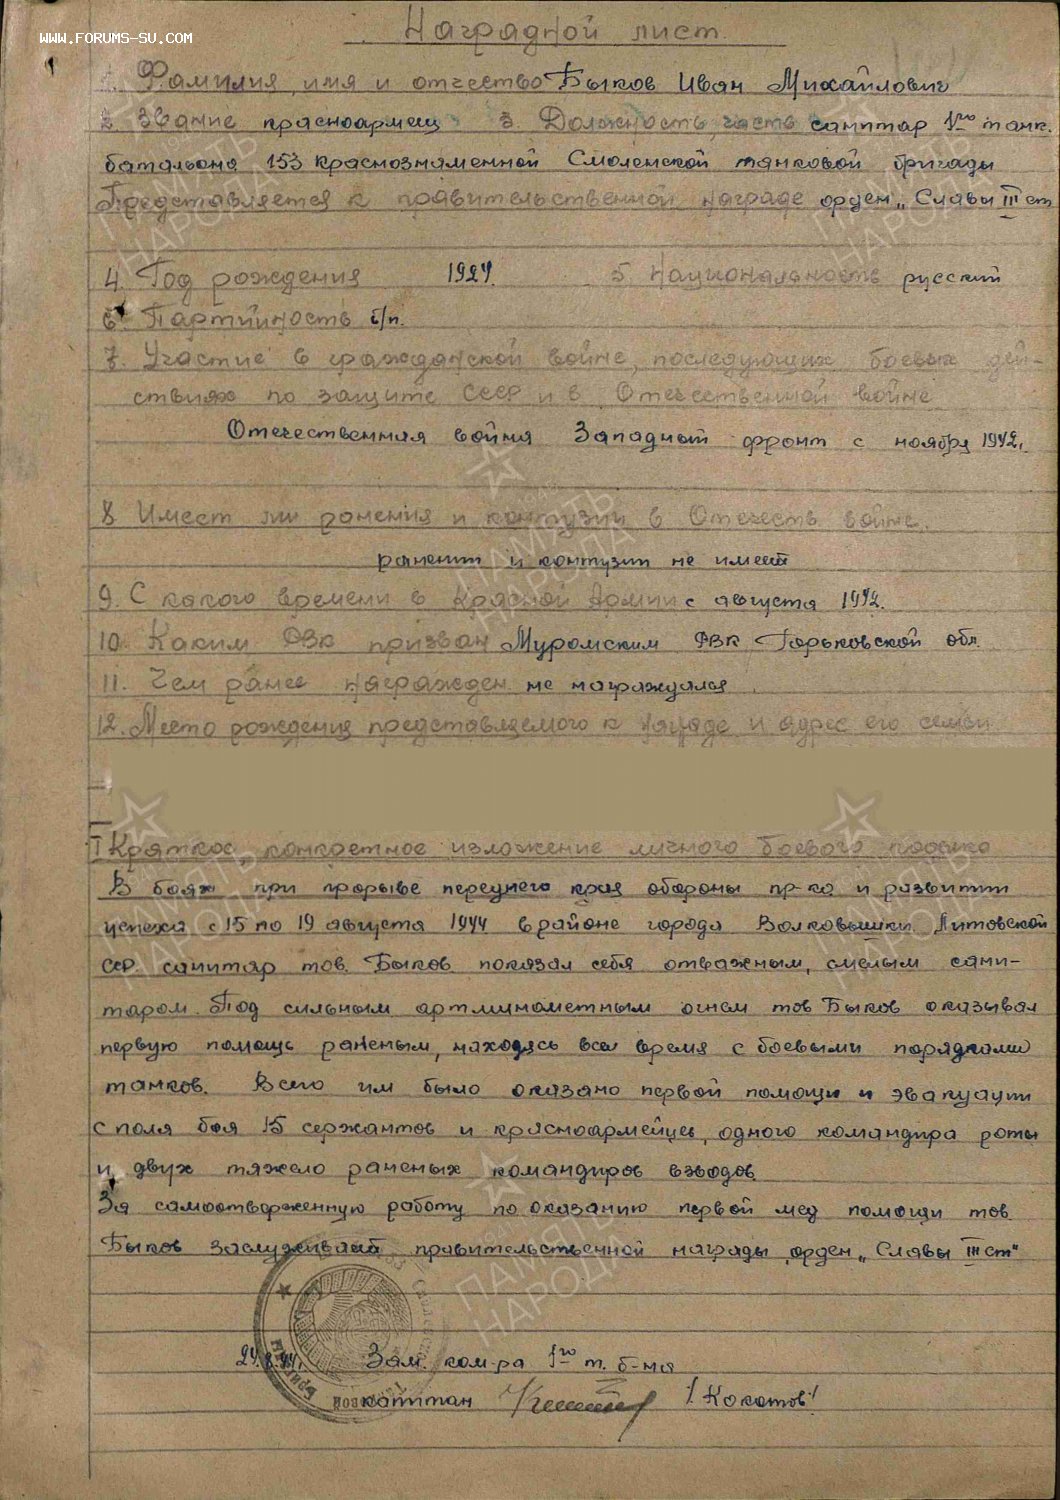 Наградной лист.
WWW.FORUMS-SU.COM
1. Фамилия, имя и отчество Быков Иван Михайлович
2. Звание красноармеец 3. Должность часть санитар 1го танк.
батальона 153 Краснознаменной Смоленской танковой бригады
Представляется к правительственной награде орден „Славы III ст
4. Год рождения 1924. 5. Национальность русский
6. Партийность б/п.
7. Участие в гражданской войне, последующих боевых дей-
ствиях по защите СССР и в Отечественной войне
Отечественная война Западный фронт с ноября 1942.
8 Имеет ли ранения и контузии в Отечеств войне.
ранений и контузий не имеет
9. С какого времени в Красной Армии с августа 1942.
10. Каким РВК призван Муромским РВК Горьковской обл.
11. Чем ранее награжден не награждался
12. Место рождения представляемого к награде и адрес его семьи
I Краткое, конкретное изложение личного боевого подвига
В боях при прорыве переднего края обороны пр-ка и развитии
успеха с 15 по 19 августа 1944 в районе города Волковышки Литовской
ССР. санитар тов. Быков показал себя отважным, смелым сани-
таром. Под сильным артминометным огнем тов Быков оказывал
первую помощь раненым, находясь все время с боевыми порядками
танков. Всего им было оказано первой помощи и эвакуации
с поля боя 15 сержантов и красноармейцев, одного командира роты
и двух тяжело раненых командиров взводов.
За самоотверженную работу по оказанию первой мед помощи тов.
Быков заслуживает правительственной награды орден „Славы III ст"
24.8.44. Зам. ком-ра 1го т. б-на
капитан /Кокотов/
ПАМЯТЬ
НАРОДА